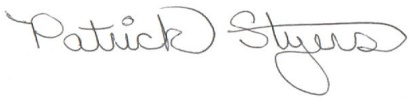 Patrick Styers